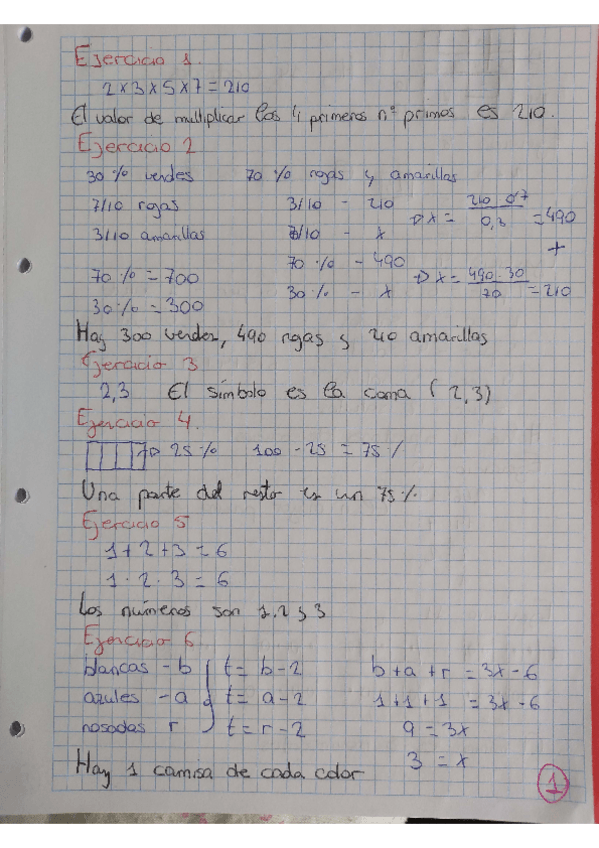 Ejercicio 1.
2x3x5x7=210
El valor de multiplicar los 4 primeros nº primos es 210.
Ejercicio 2
30% verdes 70% rojas y amarillas
7/10 rojas 3/10 - 210 x = 210·0'7 / 0,3 = 490
3/10 amarillas 7/10 - x +
70% - 490
70% = 700 30% - x x = 490·30 / 70 = 210
30% = 300
Hay 300 verdes, 490 rojas y 210 amarillas
Ejercicio 3
2,3 El símbolo es la coma (2,3)
Ejercicio 4.
25% 100-25 = 75%
Una parte del resto es un 75%.
Ejercicio 5
1+2+3=6
1·2·3=6
Los números son 1,2 y 3
Ejercicio 6
blancas - b t = b-2 b+a+r = 3x-6
azules - a t = a-2 1+1+1 = 3x-6
rosadas r t = r-2 9 = 3x
3 = x
Hay 1 camisa de cada color
1